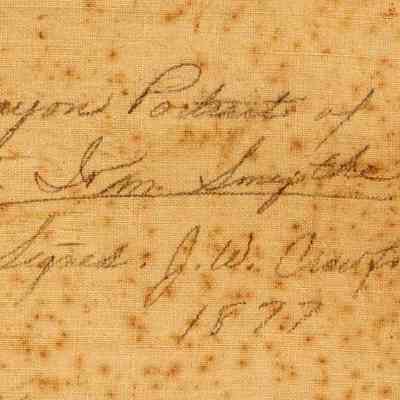 ayon Portrait of
Wm. Smythe
Signed. J. W. Crawf
1877